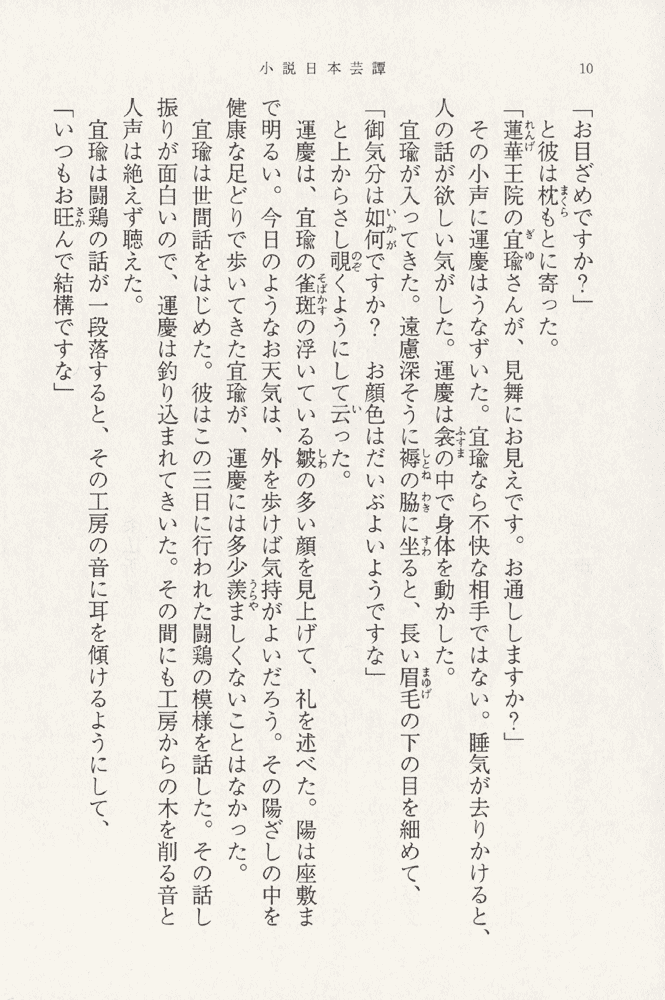 小説日本芸譚
10
「お目ざめですか？」
と彼は枕もとに寄った。
「蓮華王院の宜瑜さんが、見舞にお見えです。お通ししますか？」
その小声に運慶はうなずいた。宜瑜なら不快な相手ではない。睡気が去りかけると、
人の話が欲しい気がした。運慶は衾の中で身体を動かした。
宜瑜が入ってきた。遠慮深そうに褥の脇に坐ると、長い眉毛の下の目を細めて、
「御気分は如何ですか？　お顔色はだいぶよいようですな」
と上からさし覗くようにして云った。
運慶は、宜瑜の雀斑の浮いている皺の多い顔を見上げて、礼を述べた。陽は座敷ま
で明るい。今日のようなお天気は、外を歩けば気持がよいだろう。その陽ざしの中を
健康な足どりで歩いてきた宜瑜が、運慶には多少羨ましくないことはなかった。
宜瑜は世間話をはじめた。彼はこの三日に行われた闘鶏の模様を話した。その話し
振りが面白いので、運慶は釣り込まれてきいた。その間にも工房からの木を削る音と
人声は絶えず聴えた。
宜瑜は闘鶏の話が一段落すると、その工房の音に耳を傾けるようにして、
「いつもお旺んで結構ですな」